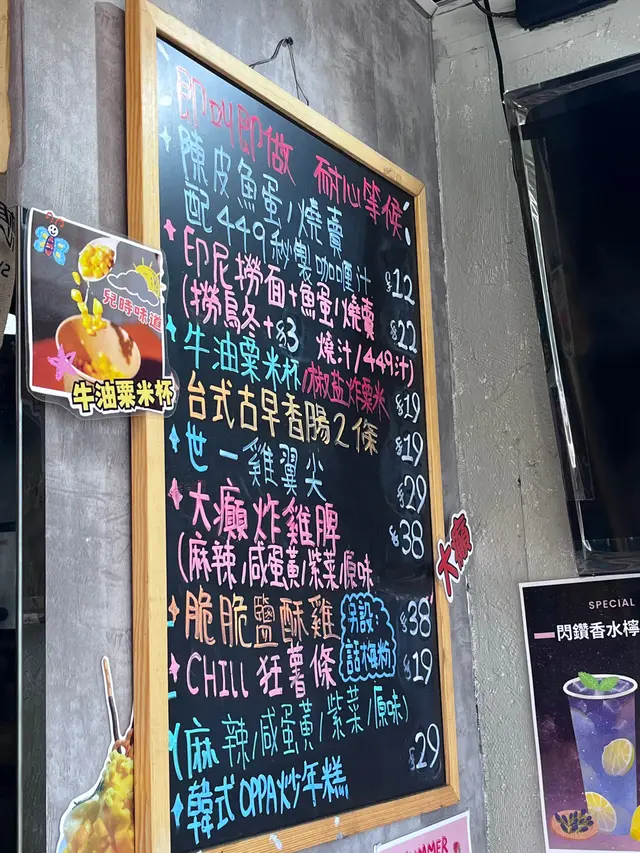 即叫即做 耐心等候
陳皮魚蛋/燒賣
配449秒製咖喱汁 $12
印尼撈面+魚蛋/燒賣 $22
(撈烏冬+$3 燒汁/449汁)
牛油粟米杯/椒鹽炸粟米 $19
台式古早香腸2條 $19
世一雞翼尖 $29
大癲炸雞脾 $38
(麻辣/咸蛋黃/紫菜/原味
脆脆鹽酥雞 $38
另設:
話梅粉
CHILL 狂薯條 $19
(麻辣/咸蛋黃/紫菜/原味)
韓式OPPA炒年糕 $29
兒時味道
牛油粟米杯
大癲
SPECIAL
閃鑽香水檸
SUMMER